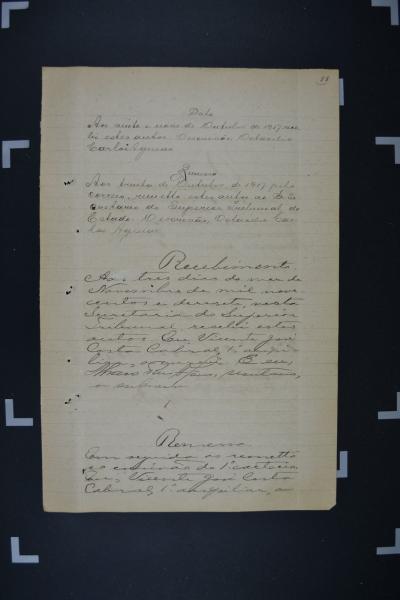 Data
Aos vinte e nove de Outubro de 1917 rece
bi estes autos. O escrivão, Octacilio
Carlos
Remessa
Aos trinta de Outubro de 1917 pelo
correio, remetto estes autos ao Se
cretario do Superior Tribunal do
Estado. O escrivão, Octacilio Car
los
Recebimento
Aos tres dias do mez de
Novembro de mil nove
centos e dezesete, nesta
Secretaria do Superior
Tribunal recebi estes
autos. Eu, Vicente José
Costa Cabral, 1º auxi
liar, escrevi. E eu,
secretario,
o subscrevi
Remessa
Em seguida os remetto
ao escrivão do 1º cartorio.
Eu, Vicente José Costa
Cabral, 1º auxiliar, o